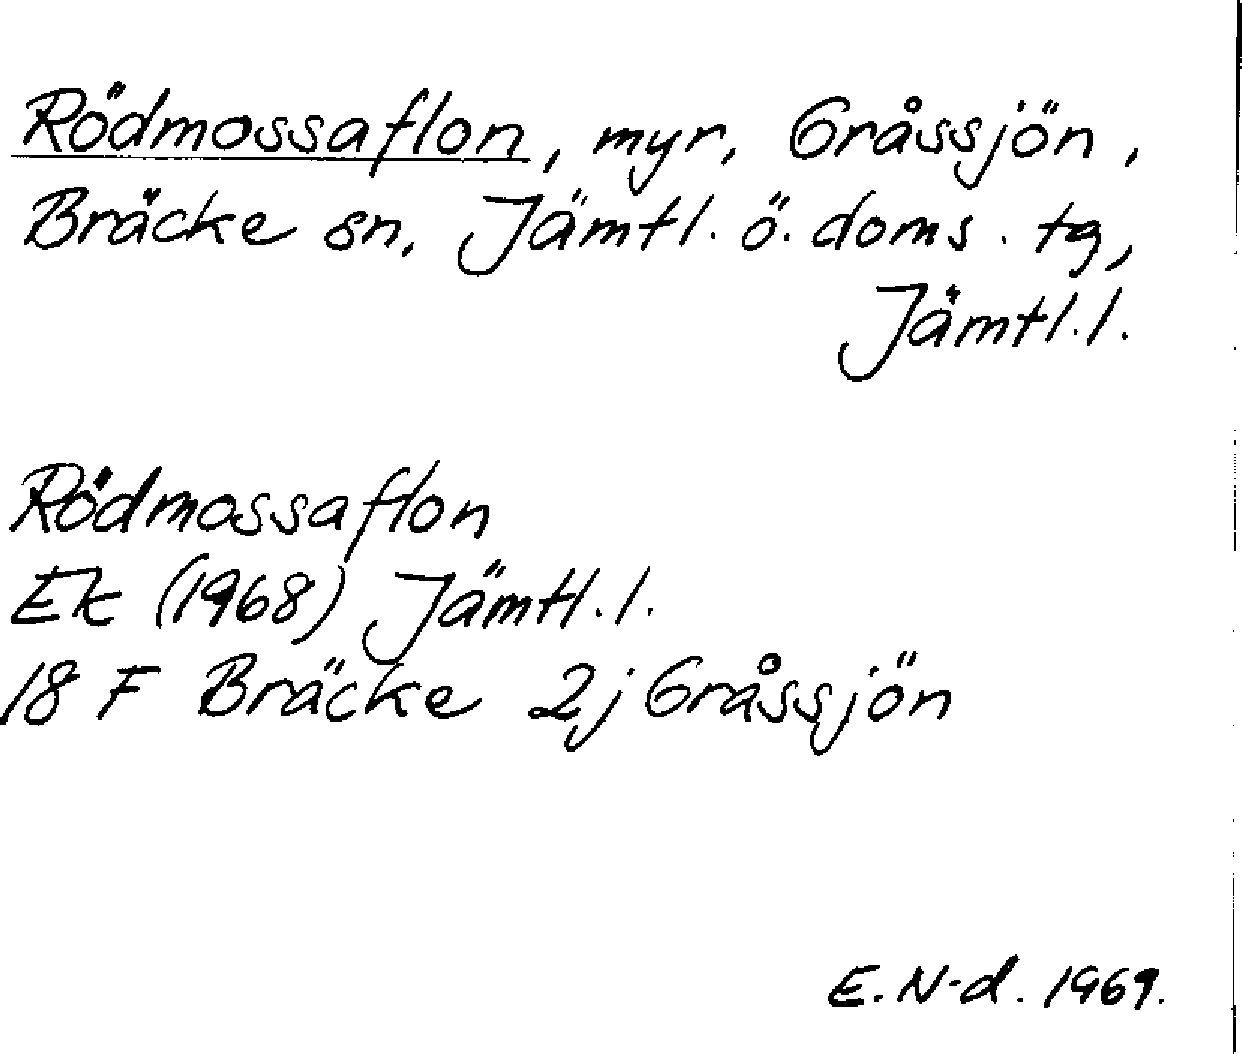 Rödmossaflon, myr, Gråssjön,
Bräcke sn, Jämtl. ö. doms. tg,
Jämtl. l.
Rödmossaflon
Ek (1968) Jämtl. l.
18 F Bräcke 2j Gråssjön
E. N-d. 1969.